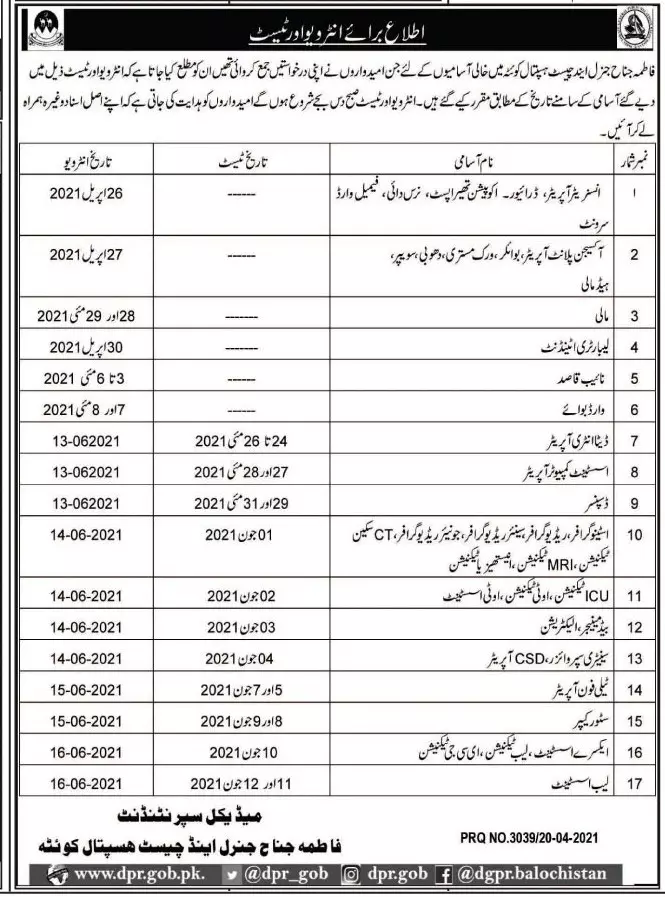 اطلاع برائے انٹرویو اور ٹیسٹ
فاطمہ جناح جنرل اینڈ چیسٹ ہسپتال کوئٹہ میں خالی آسامیوں کے لئے جن امیدواروں نے اپنی درخواستیں جمع کروائی تھیں ان کو مطلع کیا جاتا ہے کہ انٹرویو اور ٹیسٹ ذیل میں
دیے گئے آسامی کے سامنے تاریخ کے مطابق مقرر کیے گئے ہیں۔ انٹرویو اور ٹیسٹ صبح دس بجے شروع ہوں گے امیدواروں کو ہدایت کی جاتی ہے کہ اپنے اصل اسناد وغیرہ ہمراہ
لے کر آئیں۔
نمبر شمار نام آسامی تاریخ ٹیسٹ تاریخ انٹرویو
1 انسنریٹر آپریٹر، ڈرائیور۔ اکوپیشن تھیراپسٹ، نرس دائی، فیمیل وارڈ ------ 26 اپریل 2021
سرونٹ
2 آکسیجن پلانٹ آپریٹر، بوائلر، ورک مستری، دھوبی، سویپر، ------ 27 اپریل 2021
ہیڈ مالی
3 مالی ------- 28 اور 29 مئی 2021
4 لیبارٹری اٹینڈنٹ ------- 30 اپریل 2021
5 نائیب قاصد ------ 3 تا 6 مئی 2021
6 وارڈ بوائے ------ 7 اور 8 مئی 2021
7 ڈیٹا انٹری آپریٹر 24 تا 26 مئی 2021 13-062021
8 اسسٹینٹ کمپیوٹر آپریٹر 27 اور 28 مئی 2021 13-062021
9 ڈسپنسر 29 اور 31 مئی 2021 13-062021
10 اسٹینوگرافر، ریڈیوگرافر، سینئر ریڈیوگرافر، جونیئر ریڈیوگرافر، CT سکین 01 جون 2021 14-06-2021
ٹیکنیشن، MRI ٹیکنیشن، انیستھیزیا ٹیکنیشن
11 ICU ٹیکنیشن، اوٹی ٹیکنیشن، اوٹی اسسٹینٹ 02 جون 2021 14-06-2021
12 بیڈ مینیجر، الیکٹریشن 03 جون 2021 14-06-2021
13 سینیٹری سپروائزر، CSD آپریٹر 04 جون 2021 14-06-2021
14 ٹیلی فون آپریٹر 5 اور 7 جون 2021 15-06-2021
15 سٹور کیپر 8 اور 9 جون 2021 15-06-2021
16 ایکسرے اسسٹینٹ، لیب ٹیکنیشن، ای سی جی ٹیکنیشن 10 جون 2021 16-06-2021
17 لیب اسسٹینٹ 11 اور 12 جون 2021 16-06-2021
میڈیکل سپرنٹنڈنٹ
فاطمہ جناح جنرل اینڈ چیسٹ ہسپتال کوئٹہ
PRQ NO.3039/20-04-2021
www.dpr.gob.pk. @dpr_gob dpr.gob @dgpr.balochistan